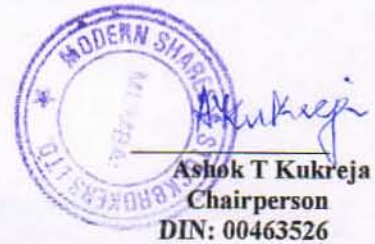 MODERN SHARES
STOCKBROKERS LTD.
MUMBAI
Ashok T Kukreja
Chairperson
DIN: 00463526